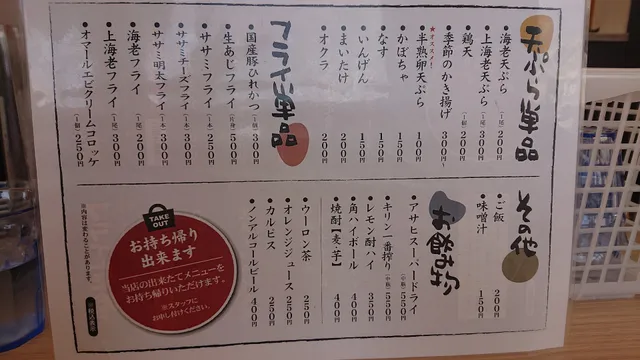 天ぷら単品
・海老天ぷら（1尾）200円
・上海老天ぷら（1尾）300円
・鶏天（1個）200円
・季節のかき揚げ 300円〜
★オススメ！
・半熟卵天ぷら 100円
・かぼちゃ 150円
・なす 150円
・いんげん 150円
・まいたけ 200円
・オクラ 200円
フライ単品
・国産豚ひれかつ（1個）300円
・生あじフライ（片身）500円
・ササミフライ（1本）250円
・ササミチーズフライ（1本）300円
・ササミ明太フライ（1本）300円
・海老フライ（1尾）200円
・上海老フライ（1尾）300円
・オマールエビクリームコロッケ（1個）250円
その他
・ご飯 200円
・味噌汁 150円
お飲み物
・アサヒスーパードライ（中瓶）550円
・キリン一番搾り（中瓶）550円
・レモン酎ハイ 350円
・角ハイボール 400円
・焼酎【麦・芋】 400円
・ウーロン茶 250円
・オレンジジュース 250円
・カルピス 250円
・ノンアルコールビール 400円
TAKE OUT
お持ち帰り
出来ます
当店の出来たてメニューを
お持ち帰りいただけます。
※スタッフに
お申し付けください。
※内容は変わることがあります。
※税込表示